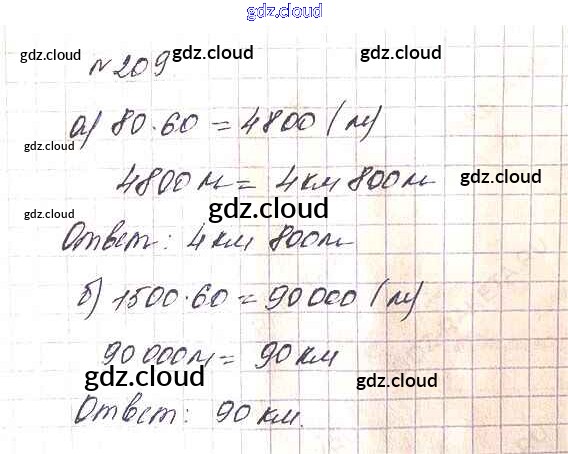 gdz.cloud
gdz.cloud gdz.cloud gdz.cloud
№ 209
а) 80·60 = 4800 (м)
gdz.cloud
4800 м = 4 км 800 м gdz.cloud
gdz.cloud gdz.cloud
Ответ: 4 км 800 м
б) 1500·60 = 90 000 (м)
90 000 м = 90 км
gdz.cloud gdz.cloud
Ответ: 90 км.